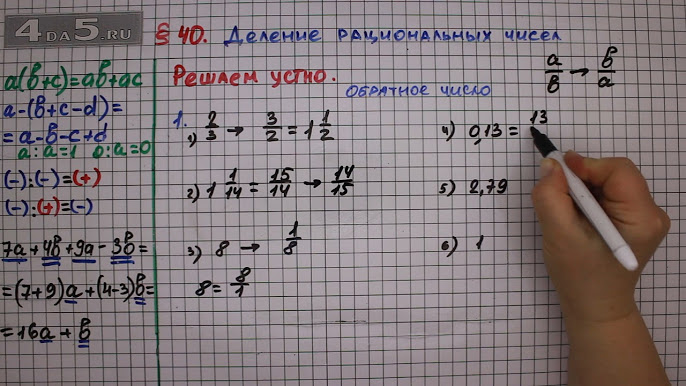 4DA5.RU
§ 40. Деление рациональных чисел
a(b+c)=ab+ac
a-(b+c-d)=
=a-b-c+d
a:a=1 0:a=0
(-):(-)=(+)
(-):(+)=(-)
7a+4b+9a-3b=
=(7+9)a+(4-3)b=
=16a+b
Решаем устно.
обратное число
a/b → b/a
1.
1) 2/3 → 3/2 = 1 1/2
2) 1 1/14 = 15/14 → 14/15
3) 8 → 1/8
8 = 8/1
4) 0,13 = 13
5) 2,79
6) 1